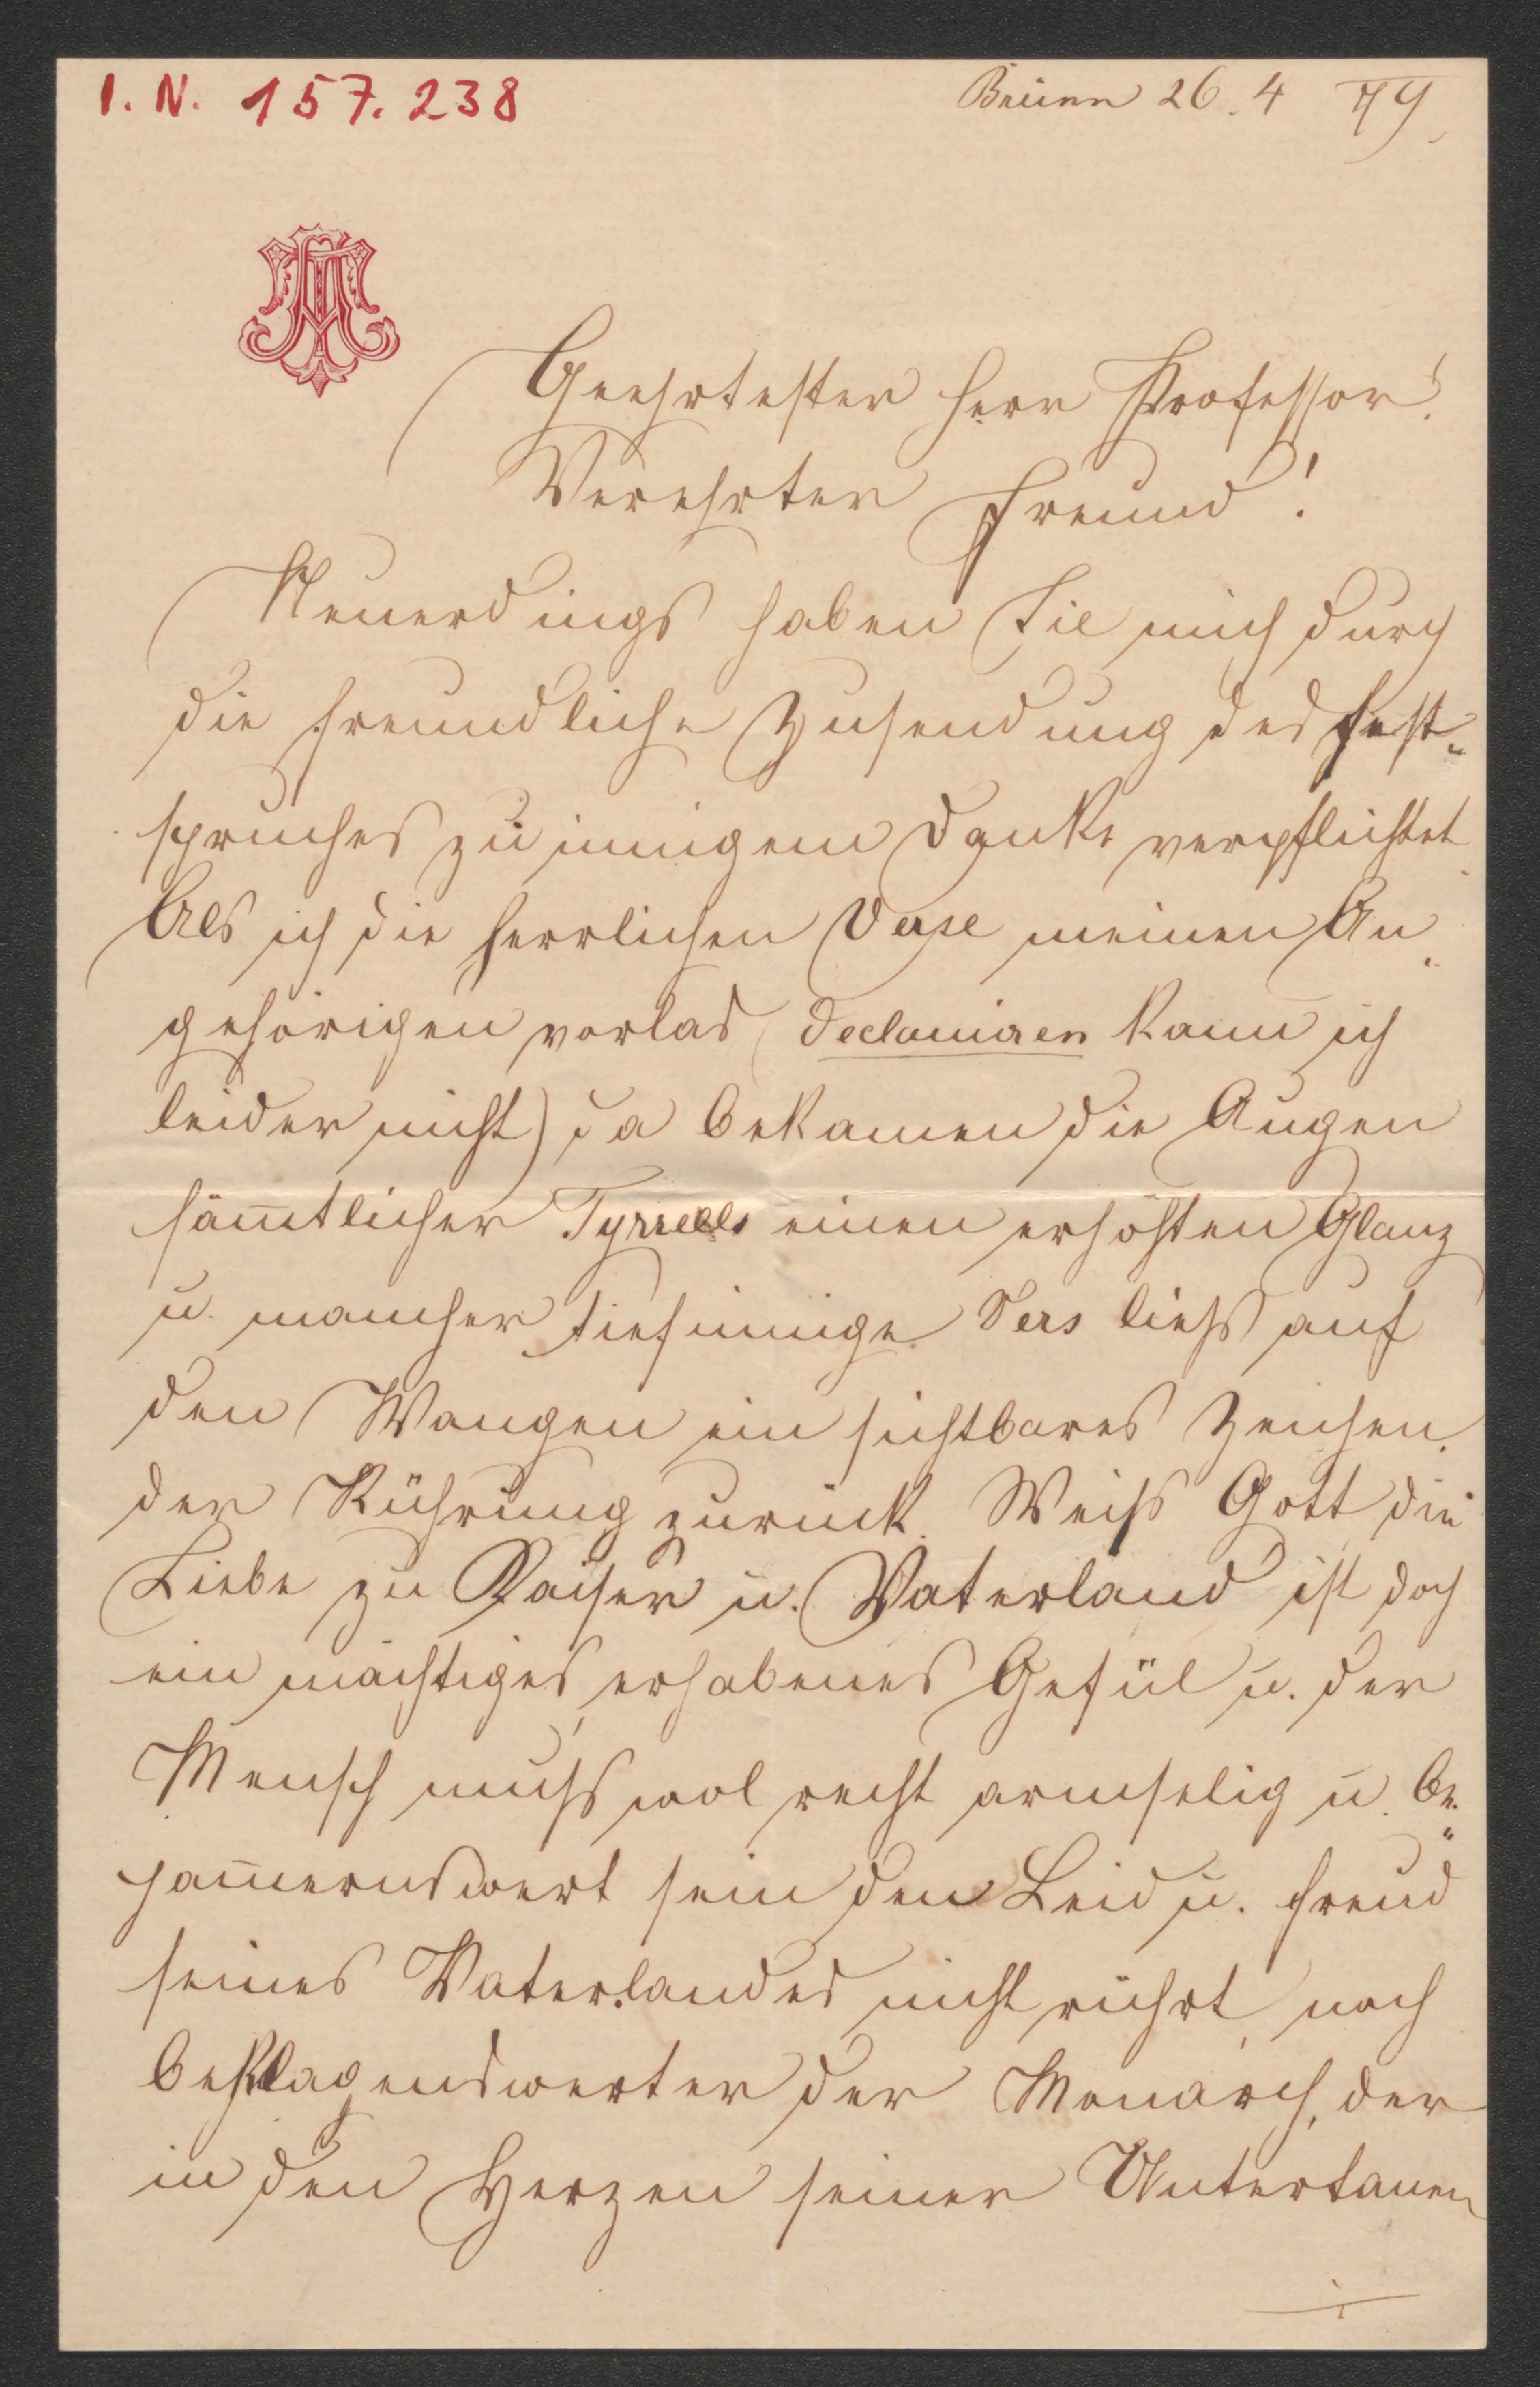 I. N. 157.238
Brünn 26.4 79.
Geehrtester Herr Professor!
Verehrter Freund!
Neuerdings haben Sie mich durch
die freundliche Zusendung des Fest-
spruches zu innigem Danke verpflichtet.
Als ich die herrlichen Verse meinen An-
gehörigen vorlas (declamiren kann ich
leider nicht) da bekamen die Augen
sämtlicher Tyrrells einen erhöhten Glanz
u. mancher tiefinnige Vers ließ auf
den Wangen ein sichtbares Zeichen
der Rührung zurück. Weiß Gott die
Liebe zu Kaiser u. Vaterland ist doch
ein mächtiges, erhabenes Gefül u. der
Mensch muß wol recht armselig u. be-
jammernswert sein den Leid u. Freud
seines Vaterlandes nicht rührt, noch
beklagenswerter der Monarch, der
in den Herzen seiner Untertanen